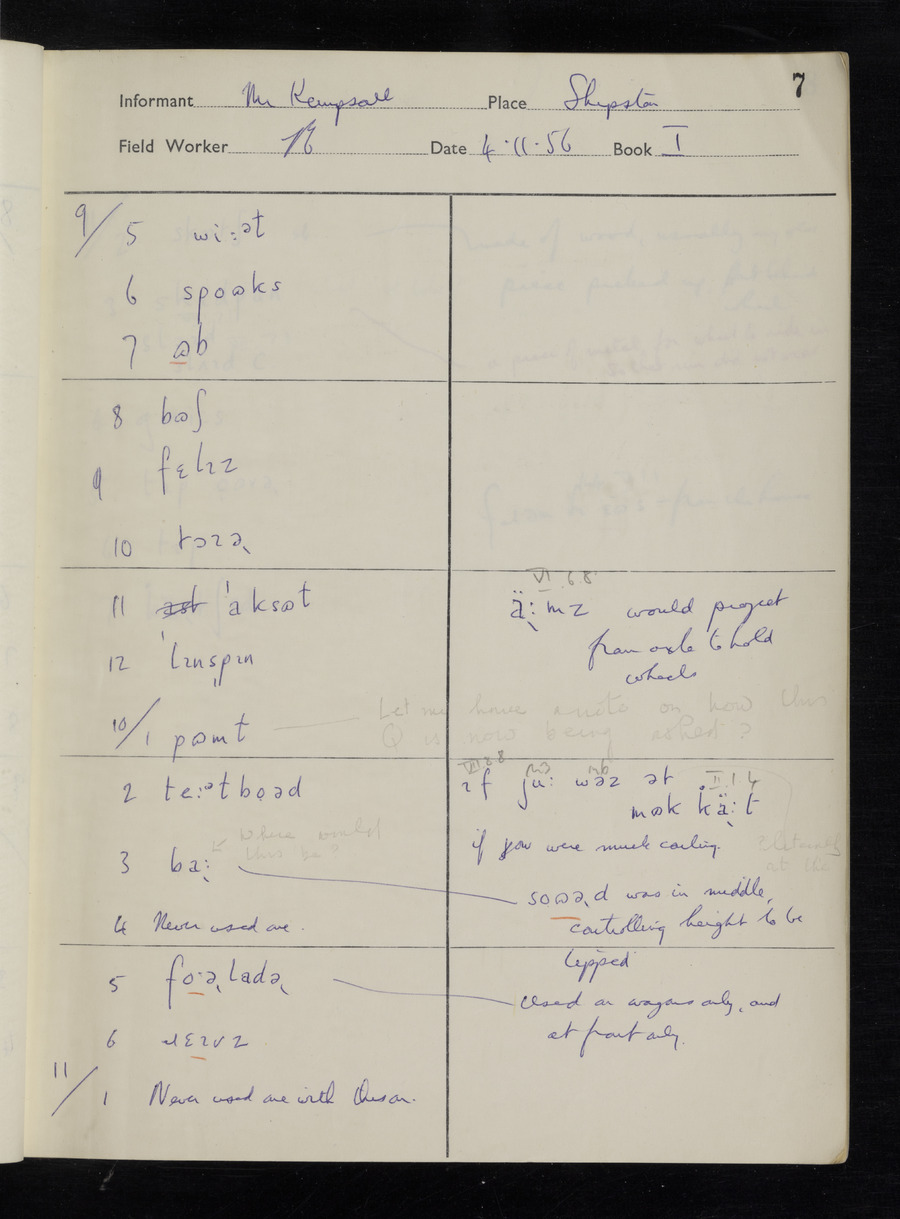 7
Informant Mr Kempsall Place Shepston
Field Worker Date 4.11.56 Book I
9/ 5 wi:ət
6 spoʊks
7 ɷb
8 bɷʃ
9 fɛlɪz
10 tɔɪə˞
11 ˈaksɷt
VI 6 8
ä˞:mz would project
from axle to hold
wheels
12 ˈlɪnspɪn
10/ 1 pɷint
Let me have a note on how this
Q is now being asked?
2 te:ətboəd
VIII 8 8
ɪf ju: wəz ət II 1 4
mɷk kä˞:t
if you were muck carting.
3 ba:
where would
this be?
soɷə˞d was in middle,
controlling height to be
tipped
4 Never used one.
5 fo·ə˞ladə˞
Used on wagons only, and
at front only.
6 ɹɛɪvz
11/ 1 Never used one with this on.